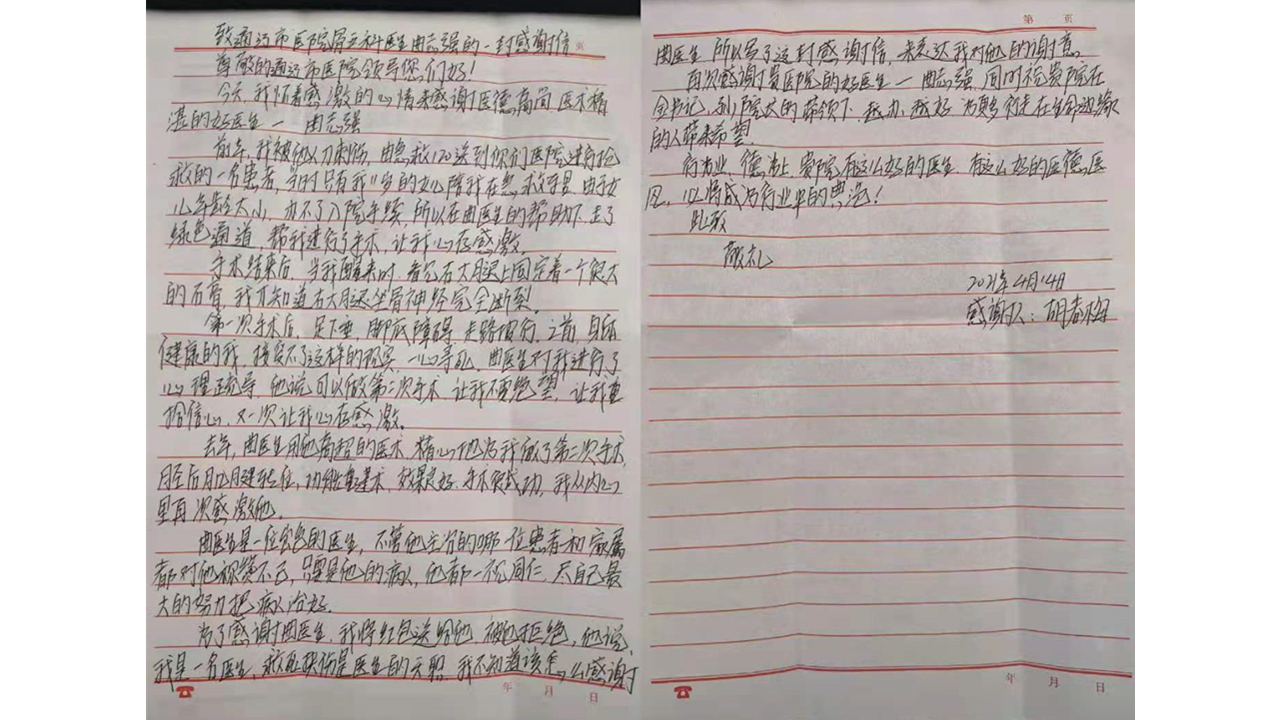 致通辽市医院骨五科医生曲志强的一封感谢信
页
尊敬的通辽市医院领导您们好!
今天,我怀着感激的心情来感谢医德高尚 医术精
湛的好医生一 曲志强
前年,我被他人刀刺伤,由急救120送到你们医院进行抢
救的一名患者,当时只有我11岁的女儿陪我在急救室里,由于女
儿年龄太小,办不了入院手续,所以在曲医生的帮助下,走了
绿色通道,帮我进行了手术,让我心存感激。
手术结束后,当我醒来时,看见右大腿上固定着一个很大
的石膏,我才知道右大腿坐骨神经完全断裂!
第一次手术后,足下垂,脚底障碍,走路跛行,之前,身体
健康的我,接受不了这样的现实,一心寻死,曲医生对我进行了
心理疏导,他说可以做第二次手术,让我不要绝望,让我重
拾信心,又一次让我心存感激。
去年,曲医生用他高超的医术,精心地为我做了第二次手术,
胫后肌腱转位,功能重建术,效果良好,手术很成功,我从内心
里再次感激他。
曲医生是一位出色的医生,不管他主治的哪一位患者和家属
都对他称赞不已,只要是他的病人,他都一视同仁,尽自己最
大的努力把病人治好.
为了感谢曲医生,我将红包送给他,被他拒绝,他说,
我是一名医生,救死扶伤是医生的天职,我不知道该怎么感谢
年 月 日
第 页
曲医生,所以写了这封感谢信,来表达我对他的谢意。
再次感谢贵医院的好医生一曲志强,同时祝贵院在
金书记,孙院长的带领下,越办越好,为更多行走在生命边缘
的人带来希望.
行为业,德为上,贵院有这么好的医生,有这么好的医德医
风,必将成为行业中的典范!
此致
敬礼
2021年4月14日
感谢人:胡春梅
年 月 日